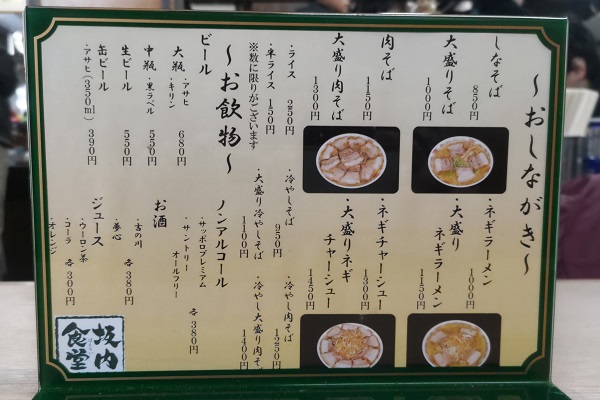 ～おしながき～
しなそば
850円
大盛りそば
1000円
肉そば
1150円
大盛り肉そば
1300円
・ネギラーメン
1000円
・大盛り
ネギラーメン
1150円
・ネギチャーシュー
1300円
・大盛りネギ
チャーシュー
1450円
・ライス
250円
・半ライス
150円
※数に限りがございます
・冷やしそば
950円
・大盛り冷やしそば
1100円
・冷やし肉そば
1250円
・冷やし大盛り肉そば
1400円
～お飲物～
ビール
大瓶
・アサヒ
・キリン
680円
中瓶
・黒ラベル
550円
生ビール
550円
缶ビール
・アサヒ(350ml)
390円
ノンアルコール
・サッポロプレミアム
・サントリー
オールフリー
各380円
お酒
・吉の川
・夢心
各380円
ジュース
・ウーロン茶
・コーラ
・オレンジ
各300円
坂内
食堂